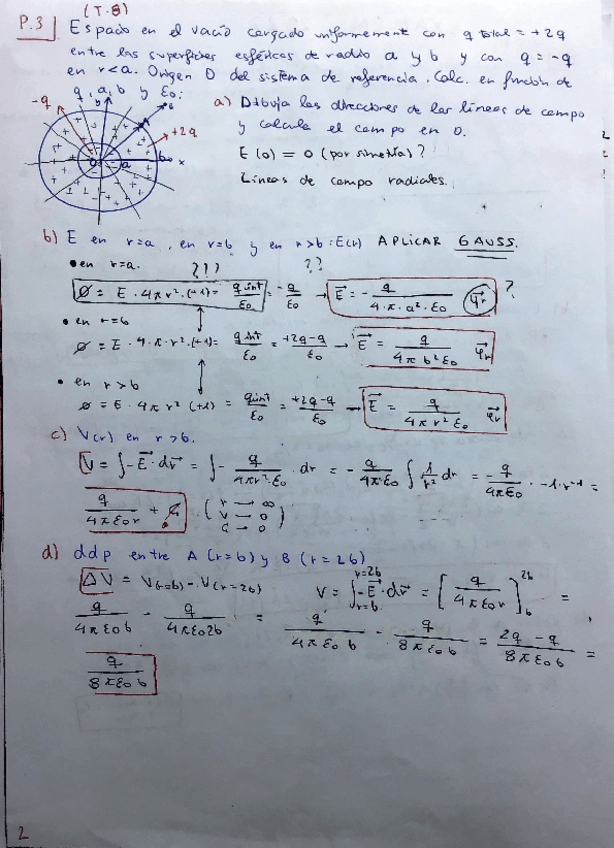 P.3 (T.8) Espacio en el vacío cargado uniformemente con q total = +2q
entre las superficies esféricas de radio a y b y con q = -q
en r<a. Origen O del sistema de referencia. Calc. en función de
q, a, b y ε0:
-q
y
b
A
+2q
O
a
b
x
a) Dibuja las direcciones de las líneas de campo
y calcula el campo en O.
E(0) = 0 (por simetría)?
Líneas de campo radiales.
b) E en r=a, en r=b y en r>b: E(r) APLICAR GAUSS.
• en r=a. ??? ??
Ø = E · 4πr² · (+1) = q int / ε0 = -q / ε0 → E⃗ = - q / 4·π·a²·ε0 u⃗r ?
• en r=b
Ø = E · 4·π·r²·(+1) = q int / ε0 = +2q-q / ε0 → E⃗ = q / 4πb²ε0 u⃗r
• en r>b
Ø = E · 4πr² (+1) = qint / ε0 = +2q-q / ε0 → E⃗ = q / 4πr²ε0 u⃗r
c) V(r) en r>b.
V = ∫-E⃗·dr⃗ = ∫- q / 4πr²·ε0 · dr = - q / 4πε0 ∫ 1/r² dr = -q / 4πε0 · -1·r⁻¹ =
q / 4πε0r + C. ( r → ∞
V → 0
C → 0 )
d) ddp entre A (r=b) y B (r=2b)
ΔV = V(r=b) - V(r=2b) V = ∫ r=b r=2b -E⃗·dr⃗ = [ q / 4πε0r ] b 2b =
q / 4πε0b - q / 4πε02b = q / 4πε0b - q / 8πε0b = 2q-q / 8πε0b =
q / 8πε0b
2